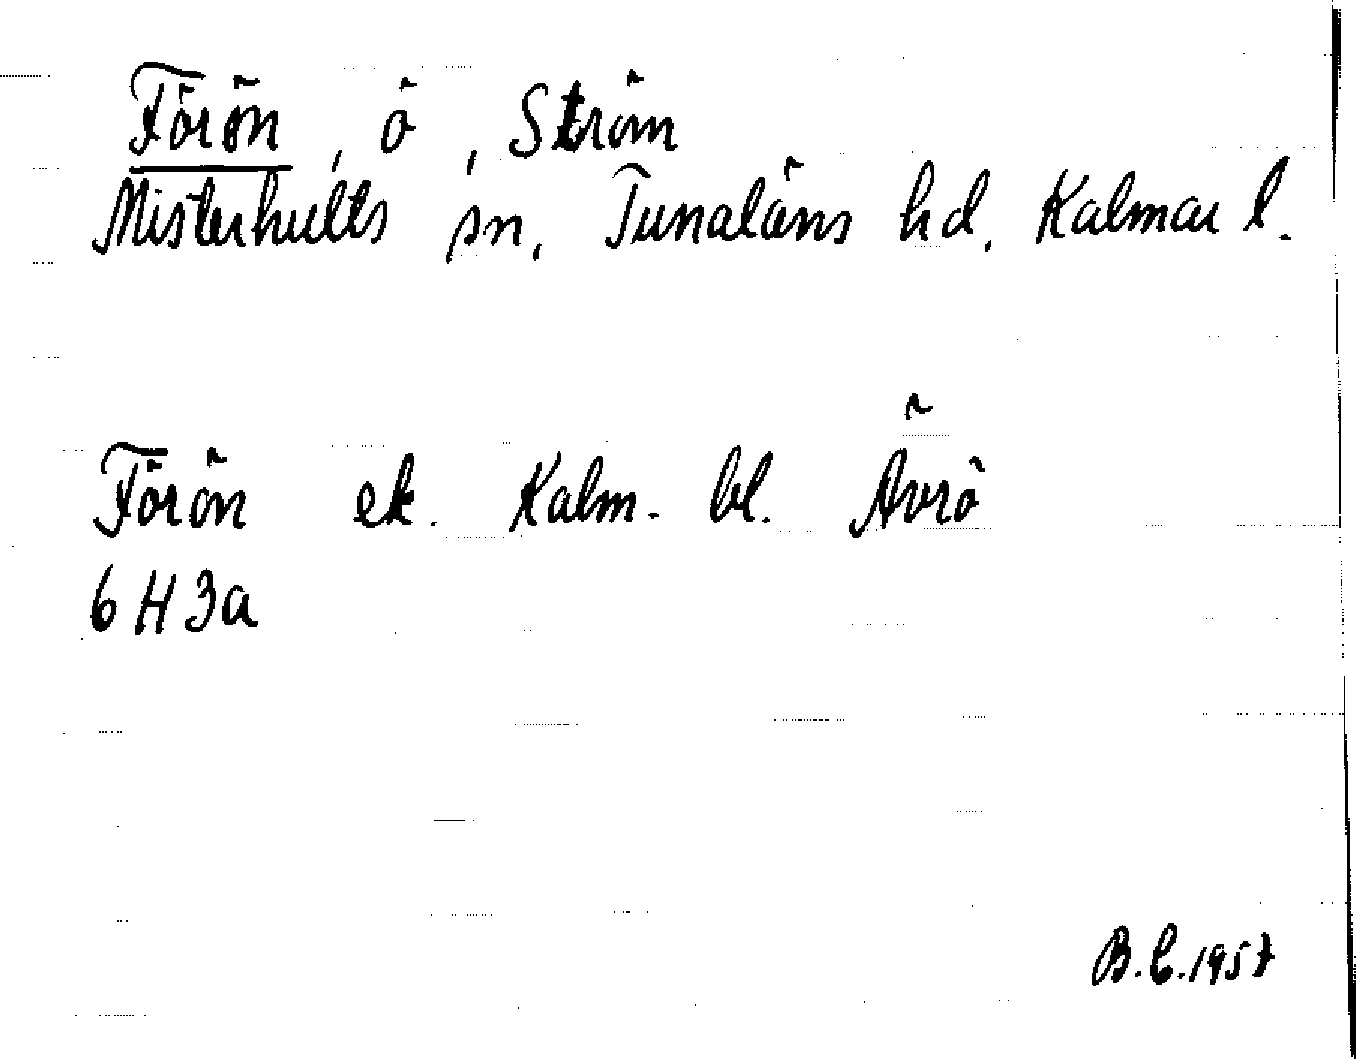 Förön, ö, Ström
Misterhults sn, Tunaläns hd, Kalmar l.
Förön ek. Kalm. bl. Ävrö
6 H 3a
B.C.1957